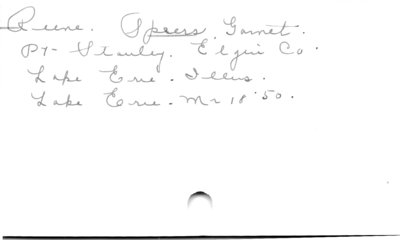 Reene. Speers, Garnet.
Pt. Stanley. Elgin Co.
Lake Erie. Illus.
Lake Erie. Mr 18 '50.